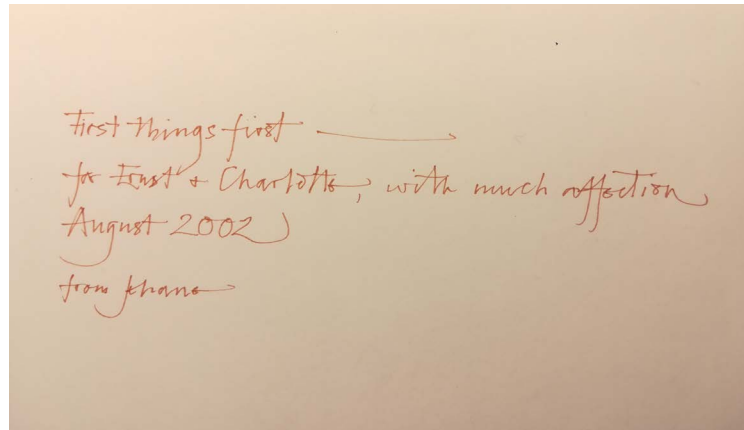 First things first →
for Ernst & Charlotte, with much affection
August 2002
from